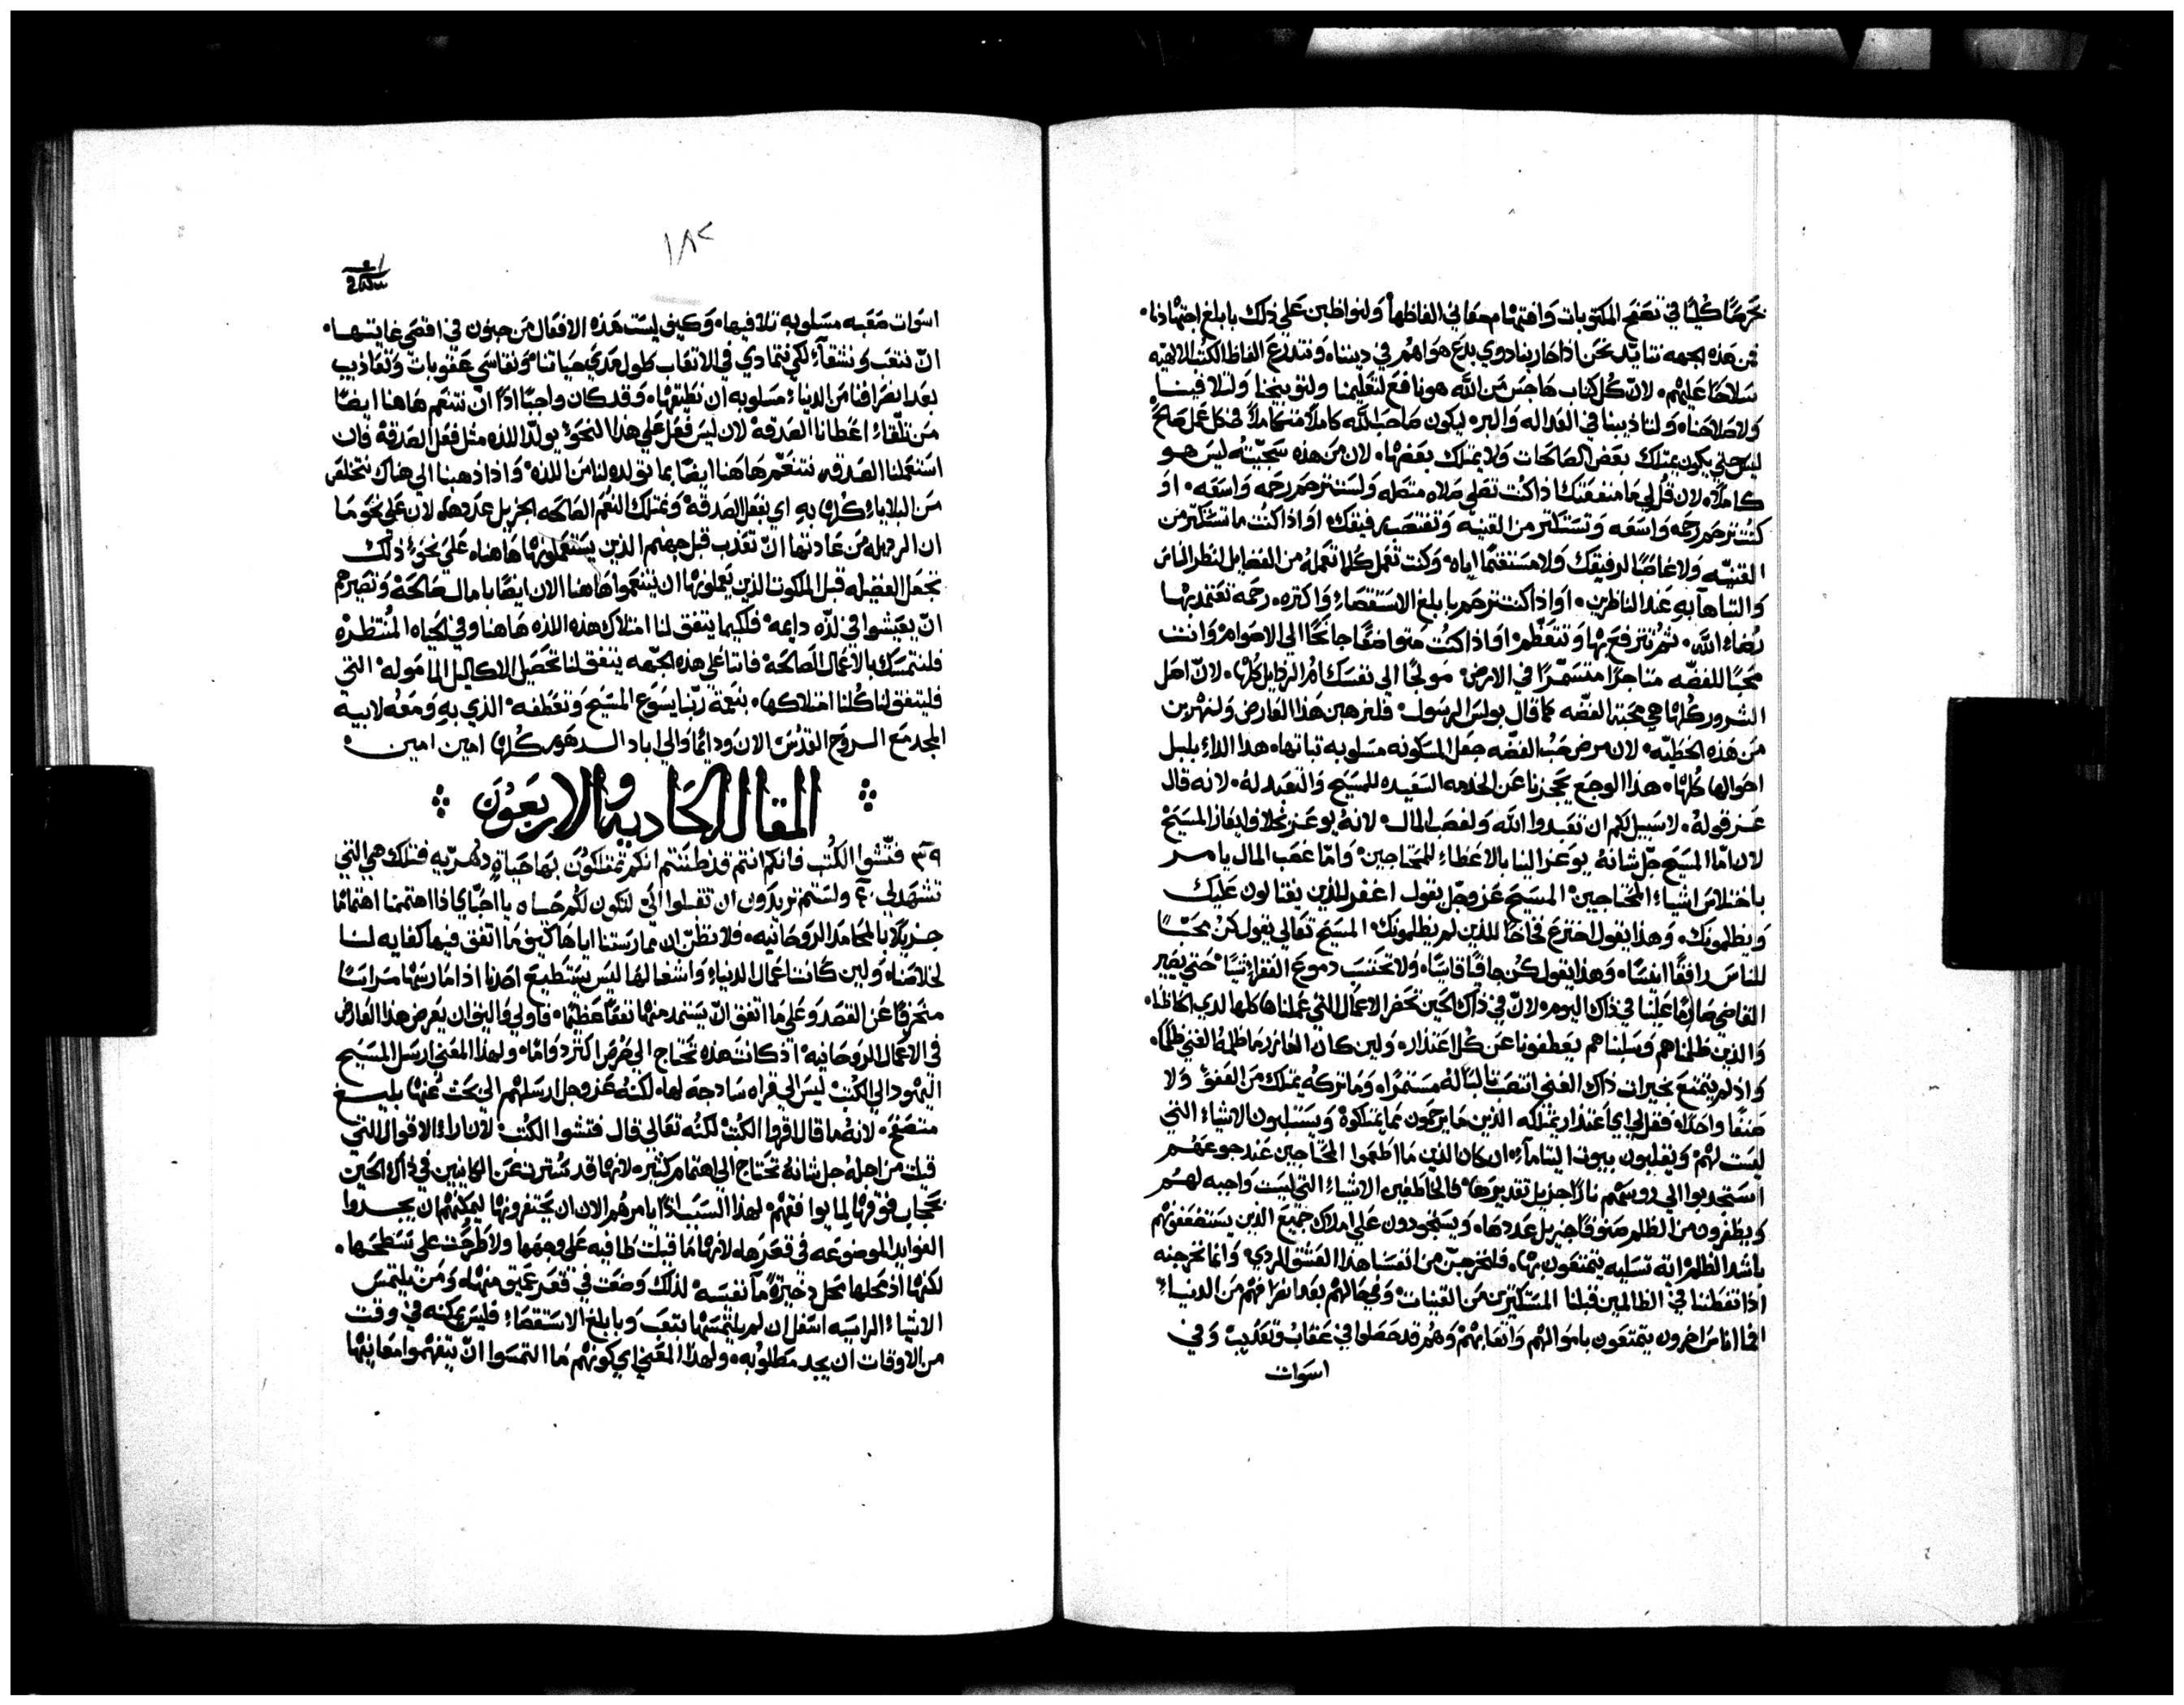 بحرصًا كليًا في تصفح المكتوبات وافتهام معاني الفاظها ولنواظبن علي ذلك بابلغ اجتهادنا
فمن هذه الجهه نتايد نحن اذا حاربنا ذوي بدع هواهم في ديننا ونتدرع الفاظ الكتب الالهيه
سلاحًا عليهم لان كل كتاب هاجس من الله هو نافع لتعليمنا ولتوبيخنا ولتلافينا
ولاصلاحنا ولتاديبنا في العداله والبر ليكون صاحب الله كاملًا متكاملًا في كل عمل صالح
ليس حتي يكون يمتلك بعض الصالحات ولا يمتلك بعضها لان من هذه سجيته ليس هو
كاملًا لان قل لي ما منفعتك اذا كنت تصلي صلاه متصله ولست ترحم رحمه واسعه او
كنت ترحم رحمه واسعه وتستكتر من القنيه وتغتصب رفيقك او اذا كنت ما تستكتر من
القنيه ولا غاصبًا لرفيقك ولا مستغنمًا اياه وكنت تعمل كلما تعمله من الفضايل لنظر الناس
والتباهآ به عند الناظرين او اذا كنت ترحم بابلغ الاستقصاء واكتره رحمه تعتمد بها
رضاء الله ثم تترفع بها وتتعظم او اذا كنت متواضعًا جانحًا الي الاصوام وانت
محبًا للفضه متاجرًا متسمرًا في الارض مولجًا الي نفسك ام الرذايل كلها لان اصل
الشرور كلها هي محبة الفضه كما قال بولس الرسول فلنرهبن هذا العارض ولنهربن
من هذه الخطيه لان مرض حب الفضه جعل المسكونه مسلوبه ثباتها هذا الداء بلبل
احوالها كلها هذا الوجع يحجزنا عن الخدمه السعيده للمسيح والتعبد له لانه قال
عز قوله لا سبيل لكم ان تعبدوا الله ولغصب المال لانه يوعز بخلاف ايعاز المسيح
لان اما المسيح جل شانه يوعز الينا بالاعطاء للمحتاجين واما غصب المال يامر
باختلاس اشياء المحتاجين المسيح عز وجل يقول اغفر للذين يغتالون عليك
ويظلمونك وهذا يقول اخترع فخاخًا للذين لم يظلمونك المسيح تعالي يقول كن محبًا
للناس رافقًا انسًا وهذا يقول كن جافًا قاسيًا ولا تحتسب دموع الفقراء شيًا حتي يصير
القاضي صارمًا علينا في ذاك اليوم لان في ذاك الحين تحضر الاعمال التي عملناها كلها لدي الحاظنا
والذين ظلمناهم وسلبناهم يعطفونا عن كل اعتذار ولين كان العازر ما ظلمه الغني ظلمًا
واذ لم يتمتع بخيرات ذاك الغني انتصب تالبًا له مستمرًا وما تركه يمتلك من العفو ولا
صنفًا واحدًا فقل لي اي اعتذار يمتلكه الذين ما يرحمون مما يمتلكوه ويستلبون الاشياء التي
ليست لهم ويقلبون بيوت اليتامآ ان كان الذين ما اطعموا المحتاجين عند جوعهم
استجدبوا الي روسهم نارًا جزيل تقديرها فالخاطفين الاشياء التي ليست واجبه لهم
ويظفرون من الظلم صنوفًا جزيل عددها ويستحوذون علي املاك جميع الذين يستضعفونهم
باشد الظلم اية تسليه يتمتعون بها فلنخرجن من انفسنا هذا العشق الردي وانما نخرجنه
اذا تفطننا في الظالمين قبلنا المستكترين من القنيات وفي حالهم بعد انصرافهم من الدنيا
افما اناس اخرون يتمتعون باموالهم واتعابهم وهم قد حصلوا في عقاب وتعذيب وفي
اسوات
١٨٢
اسوات صعبه مسلوبه تلافيها وكيف ليست هذه الافعال من جنون في اقصي غايتها
ان نتعب ونشقآء لكي نتمادي في الاتعاب طول مدي حياتنا ونقاسي عقوبات وتعاذيب
بعد انصرافنا من الدنيا مسلوبه ان نطيقها وقد كان واجبًا اذًا ان نتنعم هاهنا ايضًا
من تلقاء اعطانا الصدقة لان ليس فعل علي هذا النحو يولد اللذه مثل فعل الصدقة فان
استعملنا الصدقه نتنعم هاهنا ايضًا بما تولده لنا من اللذه واذا ذهبنا الي هناك نتخلص
من البلايا كلها به اي بفعل الصدقة ونمتلك النعم الصالحه الجزيل عددها لان علي نحو ما
ان الرذيله من عادتها ان تعذب قبل جهنم الذين يستعملونها هاهنا علي نحو ذلك
تجعل الفضيله قبل الملكوت الذين يعملونها ان يتنعموا هاهنا الان ايضًا بامال صالحة وتصيرهم
ان يعيشوا في لذه دايمه فلكيما يتفق لنا امتلاك هذه اللذه هاهنا وفي الحياه المنتظره
فلنتمسك بالاعمال الصالحة فاننا علي هذه الجهه يتفق لنا تحصيل الاكاليل المامولة التي
فليتفق لنا كلنا امتلاكها بنعمة ربنا يسوع المسيح وتعطفه الذي به ومعه لابيه
المجد مع الروح القدس الان ودائمًا والي اباد الدهور كلها امين امين
المقاله الحاديه والاربعون
٣٩ فتشوا الكتب فانكم انتم قد ظننتم انكم تمتلكون بها حياة دهريه فتلك هي التي
تشهد لي ٤٠ ولستم تريدون ان تقبلوا الي لتكون لكم حياه يا احباي اذا اهتممنا اهتمامًا
جزيلًا بالمحامد الروحانيه فلا نظن ان ممارستنا اياها كيف ما اتفق فيها كفايه لنا
لخلاصنا ولين كانت اعمال الدنيا واشغالها ليس يستطيع احدنا اذا مارسها مراسًا
منحرفًا عن القصد وعلي ما اتفق ان يستمد منها نفعًا عظيمًا فاولي واليق ان يعرض هذا العارض
في الاعمال الروحانيه اذ كانت هذه تحتاج الي حرص اكتر دوامًا ولهذا المعني ارسل المسيح
اليهود الي الكتب ليس الي قراه ساذجة لها لكنه عز وجل ارسلهم الي بحث عنها بليغ
متصفح لانه ما قال اقروا الكتب لكنه تعالي قال فتشوا الكتب لان اراء الاقوال التي
قيلت من اجله جل شانه تحتاج الي اهتمام كتير لانها قد سترت عن الكاينين في ذاك الحين
بحجاب فوقها لما يوافقهم لهذا السبب اذًا يامرهم الان ان يحتفرونها ليمكنهم ان يجدوا
الفوايد الموضوعه في قعرها لانها ما قيلت طافيه علي وجهها ولا طرحت علي سطحها
لكنها اذ محلها محل ذخيرة مآ نفسه لذلك وضعت في قعر عميق منها ومن يلتمس
الاشياء الراسيه اسفل ان لم يلتمسها بتعب وبابلغ الاستقصاء فليس يمكنه في وقت
من الاوقات ان يجد مطلوبه ولهذا المعني اي كونهم ما التمسوا ان يتفهموا معانيها